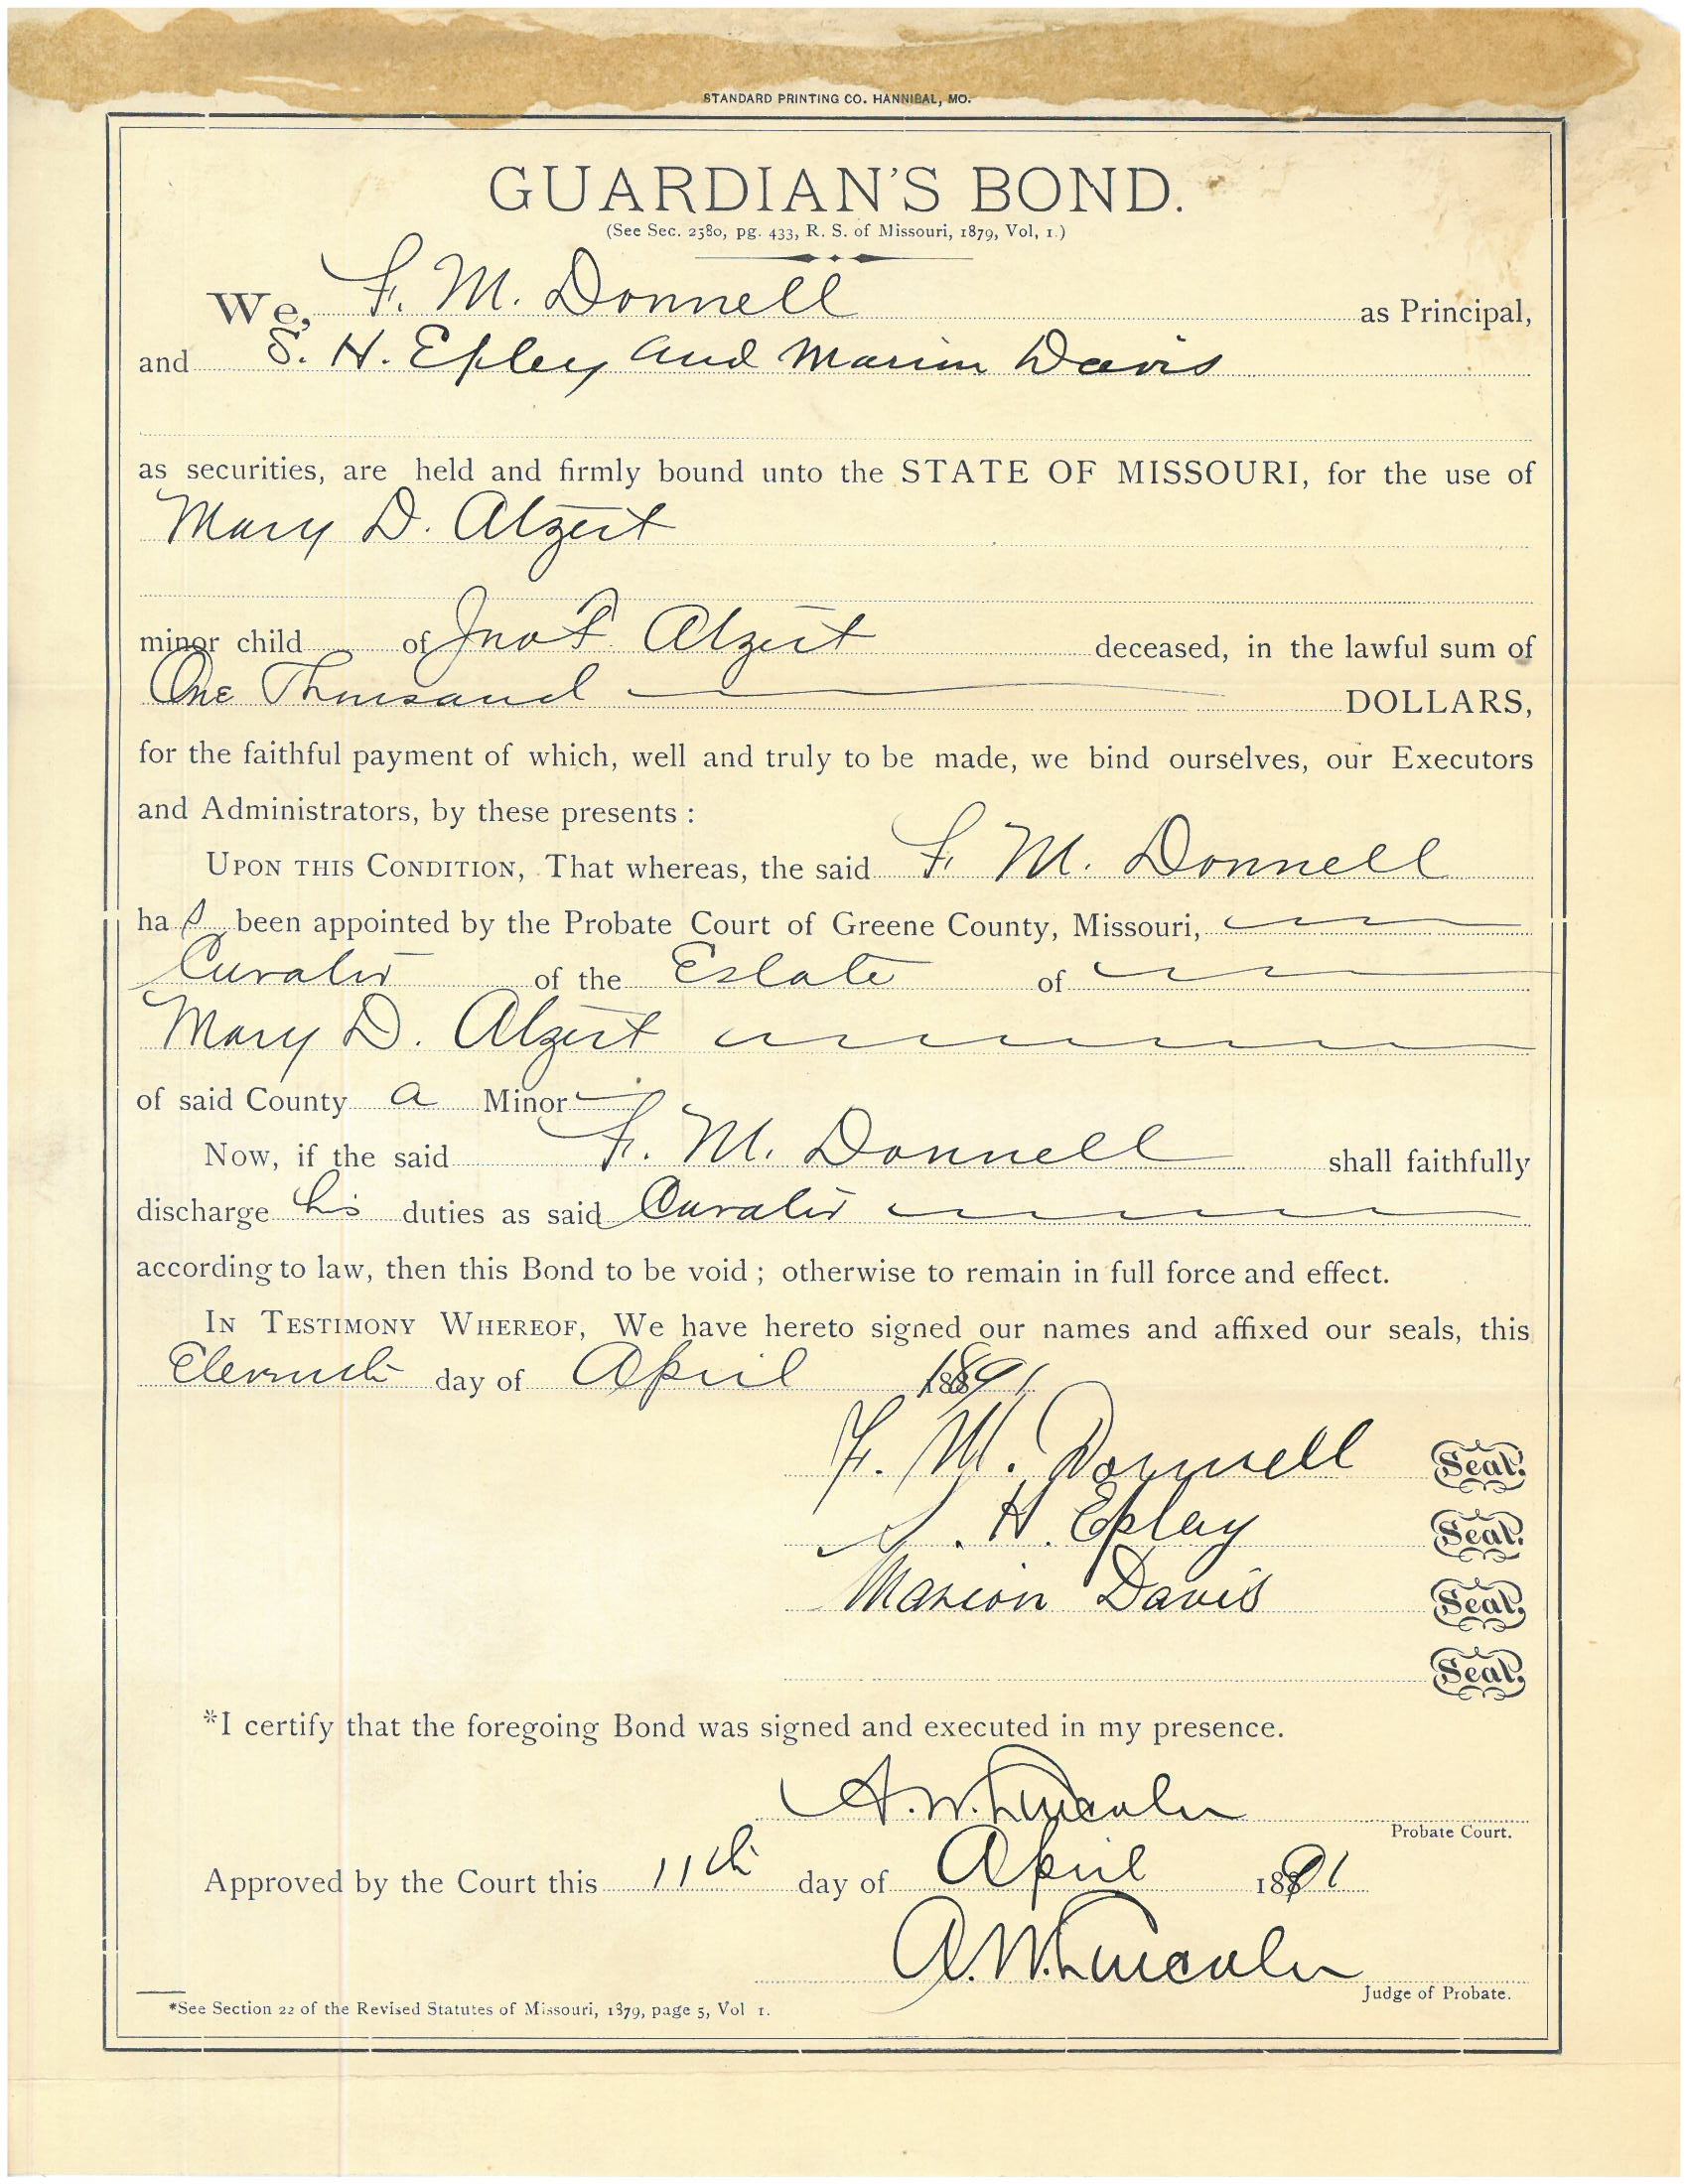 STANDARD PRINTING CO. HANNIBAL, MO.
GUARDIAN'S BOND.
(See Sec. 2580, pg. 433, R. S. of Missouri, 1879, Vol, 1.)
We, F. M. Donnell as Principal,
and S. H. Epley and Marion Davis
as securities, are held and firmly bound unto the STATE OF MISSOURI, for the use of
Mary D. Alzeit
minor child of Jno F. Alzeit deceased, in the lawful sum of
One Thousand DOLLARS,
for the faithful payment of which, well and truly to be made, we bind ourselves, our Executors
and Administrators, by these presents :
UPON THIS CONDITION, That whereas, the said F. M. Donnell
has been appointed by the Probate Court of Greene County, Missouri,
Curator of the Estate of
Mary D. Alzeit
of said County a Minor
Now, if the said F. M. Donnell shall faithfully
discharge his duties as said Curator
according to law, then this Bond to be void ; otherwise to remain in full force and effect.
IN TESTIMONY WHEREOF, We have hereto signed our names and affixed our seals, this
Eleventh day of April 1891
F. M. Donnell Seal.
S. H. Epley Seal.
Marion Davis Seal.
Seal.
*I certify that the foregoing Bond was signed and executed in my presence.
A. W. Lincoln
Probate Court.
Approved by the Court this 11th day of April 1891
A. W. Lincoln
Judge of Probate.
*See Section 22 of the Revised Statutes of Missouri, 1879, page 5, Vol 1.